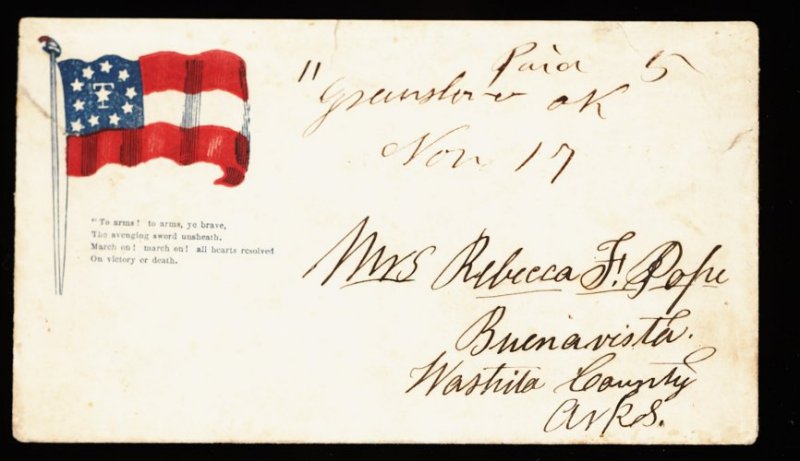 T
"To arms! to arms, ye brave,
The avenging sword unsheath.
March on! march on! all hearts resolved
On victory or death.
Paid 5
"
Nov 17
Mrs Rebecca F. Pope
Buenavista.
Washita County
Arks.